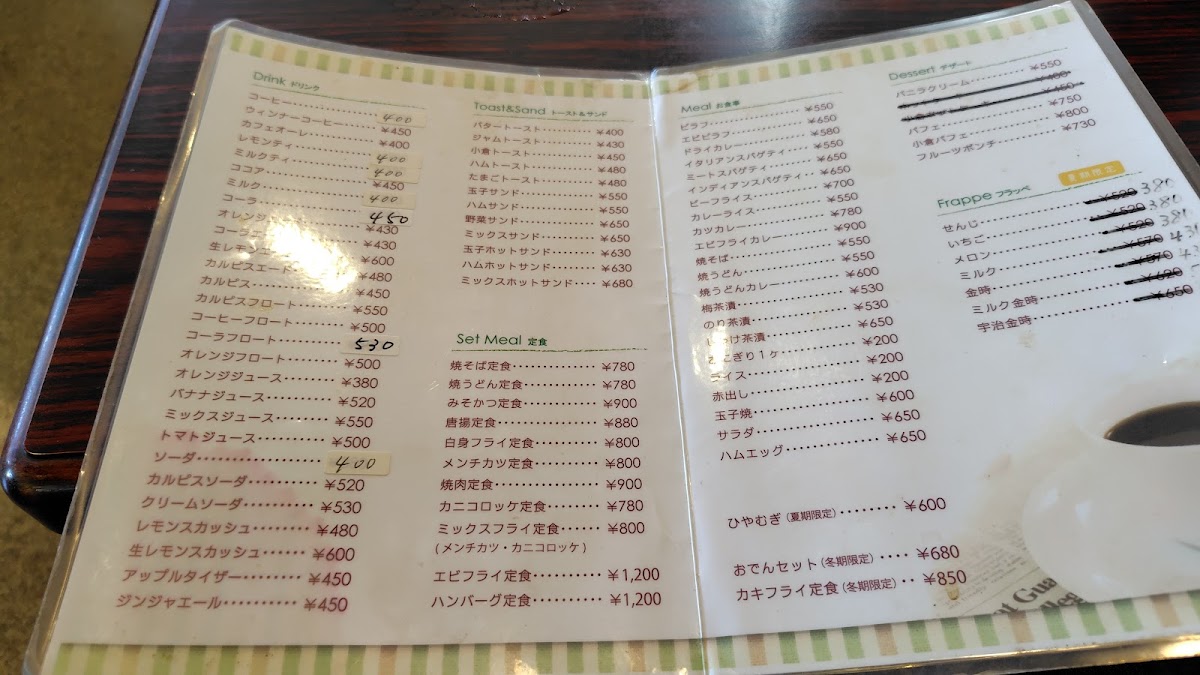 Drink ドリンク
コーヒー 400
ウィンナーコーヒー ¥450
カフェオーレ ¥400
レモンティ 400
ミルクティ 400
ココア ¥450
ミルク 400
コーラ 450
オレンジ ¥430
コーラ ¥430
生レモン ¥600
カルピスエード ¥480
カルピス ¥450
カルピスフロート ¥550
コーヒーフロート ¥500
コーラフロート 530
オレンジフロート ¥500
オレンジジュース ¥380
バナナジュース ¥520
ミックスジュース ¥550
トマトジュース ¥500
ソーダ 400
カルピスソーダ ¥520
クリームソーダ ¥530
レモンスカッシュ ¥480
生レモンスカッシュ ¥600
アップルタイザー ¥450
ジンジャエール ¥450
Toast&Sand トースト&サンド
バタートースト ¥400
ジャムトースト ¥430
小倉トースト ¥450
ハムトースト ¥480
たまごトースト ¥480
玉子サンド ¥550
ハムサンド ¥550
野菜サンド ¥650
ミックスサンド ¥650
玉子ホットサンド ¥630
ハムホットサンド ¥630
ミックスホットサンド ¥680
Set Meal 定食
焼そば定食 ¥780
焼うどん定食 ¥780
みそかつ定食 ¥900
唐揚定食 ¥880
白身フライ定食 ¥800
メンチカツ定食 ¥800
焼肉定食 ¥900
カニコロッケ定食 ¥780
ミックスフライ定食 ¥800
(メンチカツ・カニコロッケ)
エビフライ定食 ¥1,200
ハンバーグ定食 ¥1,200
Meal お食事
ピラフ ¥550
エビピラフ ¥650
ドライカレー ¥580
イタリアンスパゲティ ¥550
ミートスパゲティ ¥650
インディアンスパゲティ ¥650
ビーフライス ¥700
カレーライス ¥550
カツカレー ¥780
エビフライカレー ¥900
焼そば ¥550
焼うどん ¥550
焼うどんカレー ¥600
梅茶漬 ¥530
のり茶漬 ¥530
しゃけ茶漬 ¥650
おにぎり1ヶ ¥200
ライス ¥200
赤出し ¥200
玉子焼 ¥600
サラダ ¥650
ハムエッグ ¥650
ひやむぎ(夏期限定) ¥600
おでんセット(冬期限定) ¥680
カキフライ定食(冬期限定) ¥850
Dessert デザート
バニラクリーム ¥550
¥480
¥450
パフェ ¥750
小倉パフェ ¥800
フルーツポンチ ¥730
夏期限定
Frappe フラッペ
せんじ ¥520 380
いちご ¥520 380
メロン ¥520 380
ミルク ¥570 430
金時 ¥570
ミルク金時 ¥620
宇治金時 ¥650